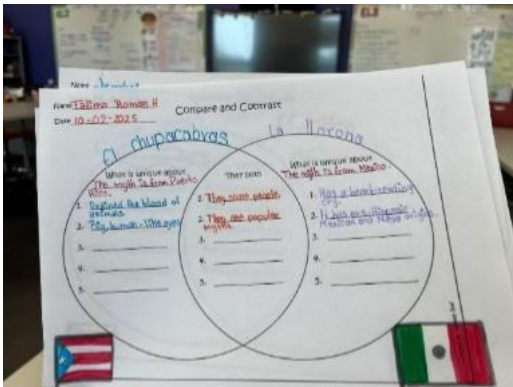 Name
Name Fatima Roman H
Date 10-02-2025
Compare and Contrast
El chupacabras
La llorona
What is unique about
The myth is from Puerto
Rico.
1. Drained the blood of
animals
2. Big human-like eyes
3.
4.
5.
They both
1. They scare people.
2. They are popular
myths.
3.
4.
5.
What is unique about
The myth is from Mexico.
1. Has a heart-rending
cry.
2. It has pre-Hispanic
Mexican and
3.
4.
5.